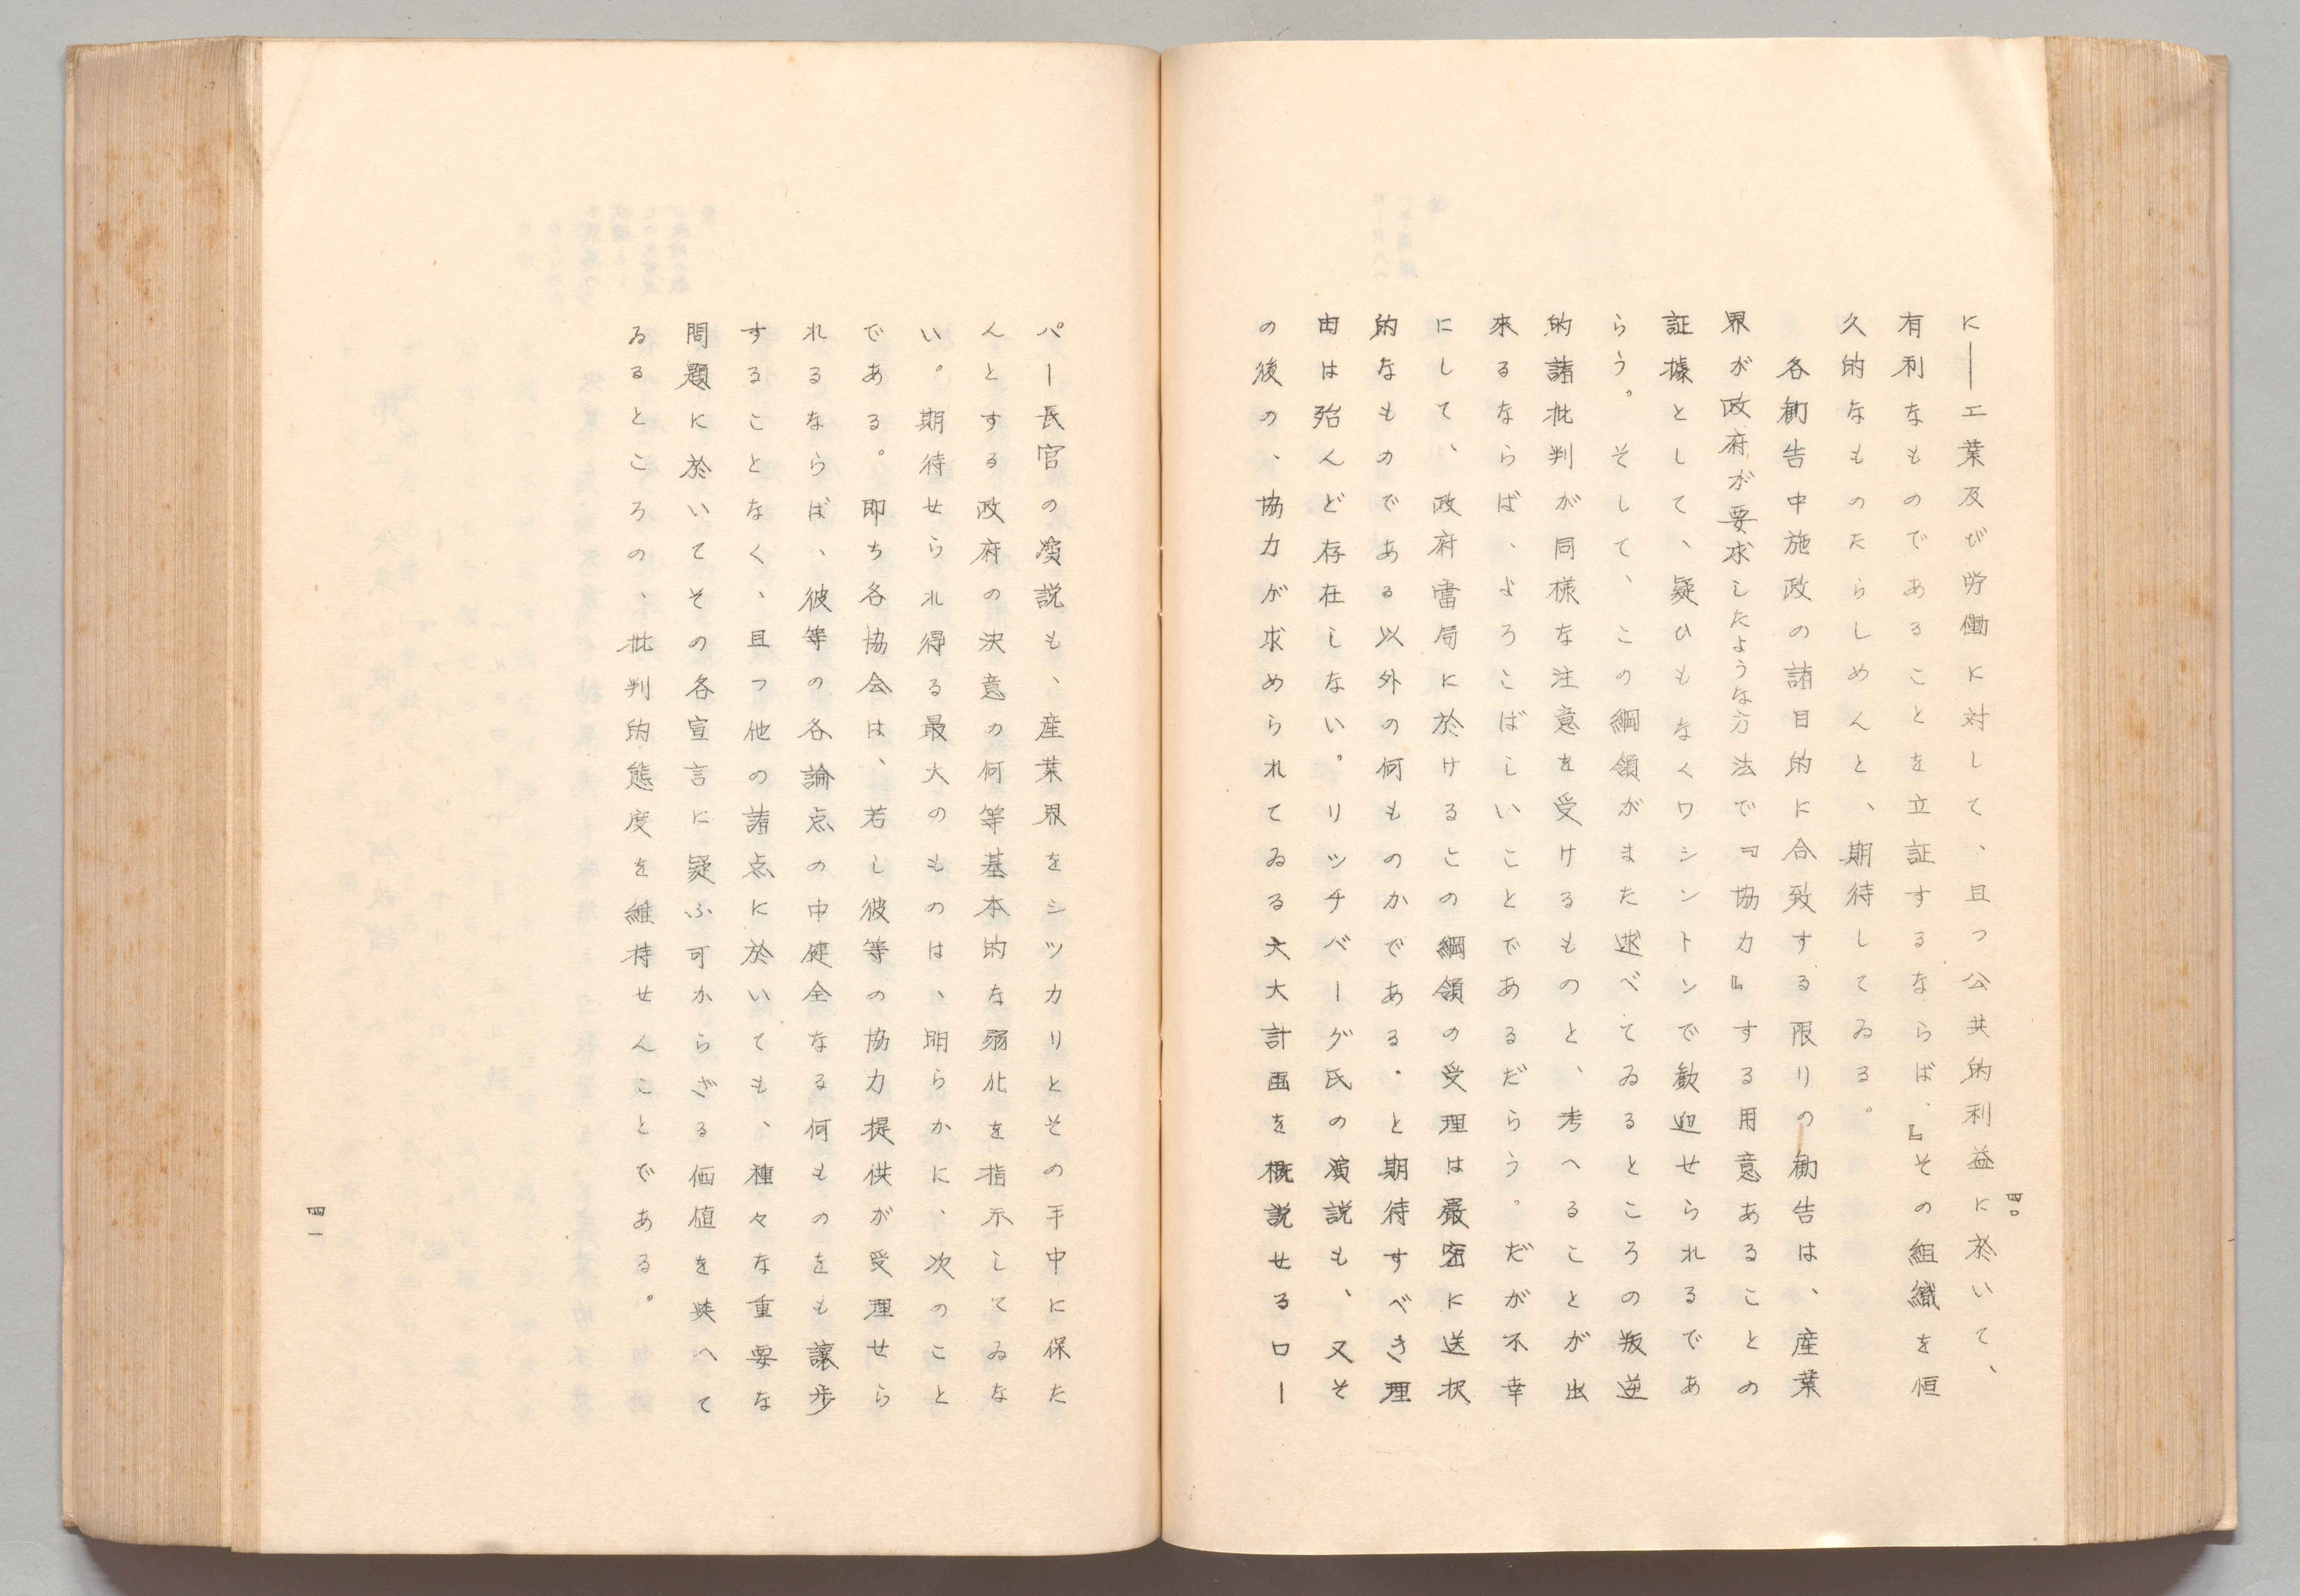 四〇
に——工業及び労働に対して、且つ公共的利益に於いて、
有利なものであることを立証するならば、』その組織を恒
久的なものたらしめんと、期待してゐる。
各勧告中施政の諸目的に合致する限りの勧告は、産業
界が政府が要求したような方法で『協力』する用意あることの
証據として、疑ひもなくワシントンで歓迎せられるであ
らう。そして、この綱領がまた述べてゐるところの叛逆
的諸批判が同様な注意を受けるものと、考へることが出
來るならば、よろこばしいことであるだらう。だが不幸
にして、政府當局に於けるこの綱領の受理は嚴密に送択
的なものである以外の何ものかである・と期待すべき理
由は殆んど存在しない。リッチバーグ氏の演説も、又そ
の後の、協力が求められてゐる大大計画を概説せるロー
パー長官の演説も、産業界をシツカリとその手中に保た
んとする政府の決意の何等基本的な弱化を指示してゐな
い。期待せられ得る最大のものは、明らかに、次のこと
である。即ち各協会は、若し彼等の協力提供が受理せら
れるならば、彼等の各論点の中健全なる何ものをも讓歩
することなく、且つ他の諸点に於いても、種々な重要な
問題に於いてその各宣言に疑ふ可からざる価値を與へて
ゐるところの、批判的態度を維持せんことである。
四一